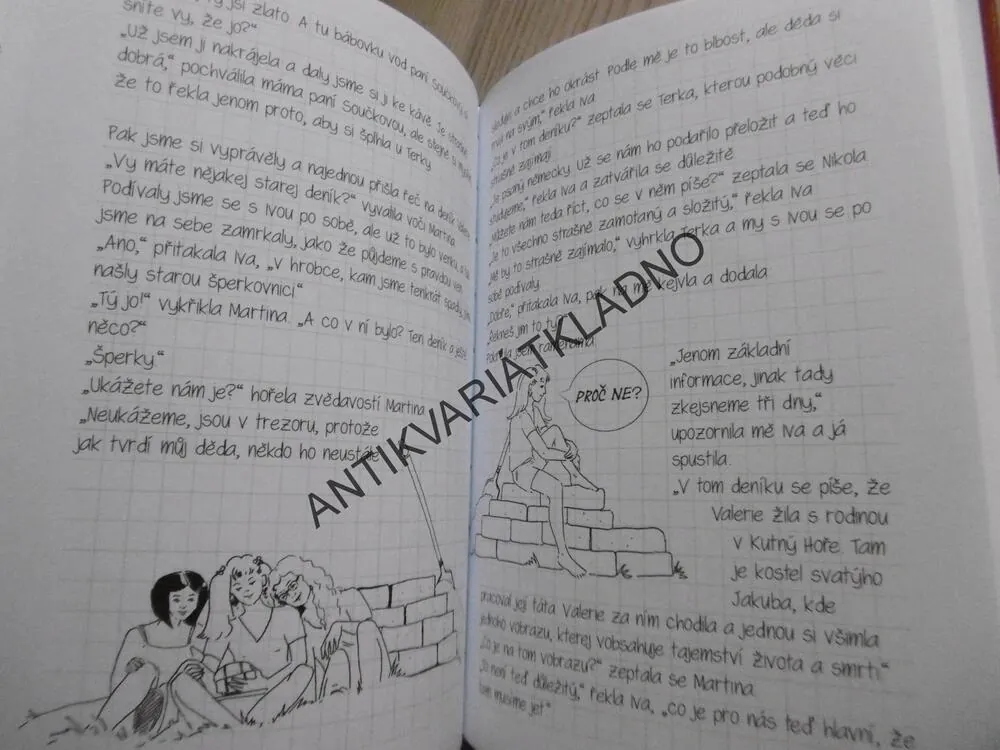 jsi zlato. A tu bábovku vod paní Součkový si
sníte vy, že jo?"
„Už jsem ji nakrájela a daly jsme si ji ke kávě. Je strašně
dobrá," pochválila máma paní Součkovou, ale stejně si myslím,
že to řekla jenom proto, aby si šplhla u Terky.
Pak jsme si vyprávěly a najednou přišla řeč na deník Valerie.
„Vy máte nějakej starej deník?" vyvalila voči Martina.
Podívaly jsme se s Ivou po sobě, ale už to bylo venku, a tak
jsme na sebe zamrkaly, jako že půjdeme s pravdou ven.
„Ano," přitakala Iva, „v hrobce, kam jsme tenkrát spadly, jsme
našly starou šperkovnici."
„Tý jo!" vykřikla Martina. „A co v ní bylo? Ten deník a ještě
něco?"
„Šperky."
„Ukážete nám je?" hořela zvědavostí Martina.
„Neukážeme, jsou v trezoru, protože
jak tvrdí můj děda, někdo ho neustále
sleduje a chce ho okrást. Podle mě je to blbost, ale děda si
trvá na svým," řekla Iva.
„Co je v tom deníku?" zeptala se Terka, kterou podobný věci
strašně zajímaj.
„Je psaný německy. Už se nám ho podařilo přeložit a teď ho
studujeme," řekla Iva a zatvářila se důležitě.
„Můžete nám teda říct, co se v něm píše?" zeptala se Nikola.
„Je to všechno strašně zamotaný a složitý," řekla Iva.
„Mě by to strašně zajímalo," vyhrkla Terka a my s Ivou se po
sobě podívaly.
„Dobře," přitakala Iva, pak na mě kejvla a dodala:
„Řekneš jim to ty?"
Pokrčila jsem ramenama.
PROČ NE?
„Jenom základní
informace, jinak tady
zkejsneme tři dny,"
upozornila mě Iva a já
spustila.
„V tom deníku se píše, že
Valerie žila s rodinou
v Kutný Hoře. Tam
je kostel svatýho
Jakuba, kde
pracoval její táta. Valerie za ním chodila a jednou si všimla
jednoho vobrazu, kterej vobsahuje tajemství života a smrti."
„Co je na tom vobrazu?" zeptala se Martina.
„To není teď důležitý," řekla Iva, „co je pro nás teď hlavní, že
tam musíme jet."
ANTIKVARIATKLADNO